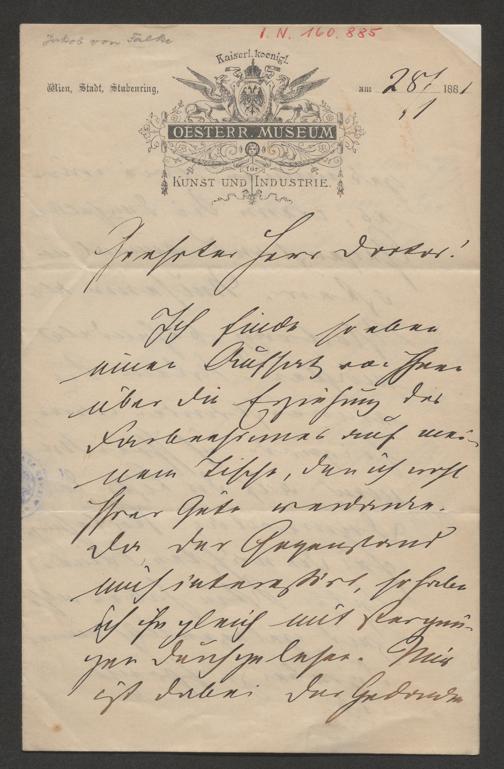 Jakob von Falke
I. N. 160.885
Kaiserl. koenigl.
Wien, Stadt, Stubenring,
am 28/1 1881
OESTERR. MUSEUM
für
KUNST UND INDUSTRIE.
Geehrter Herr Doctor!
Ich finde so eben
einen Aufsatz von Ihnen
über die Erziehung des
Farbensinnes auf mei-
nem Tische, den ich wohl
Ihrer Güte verdanke.
Da der Gegenstand
mich interessirt, so habe
ich ihn gleich mit Vergnü-
gen durchgelesen. Mir
ist dabei der Gedanke